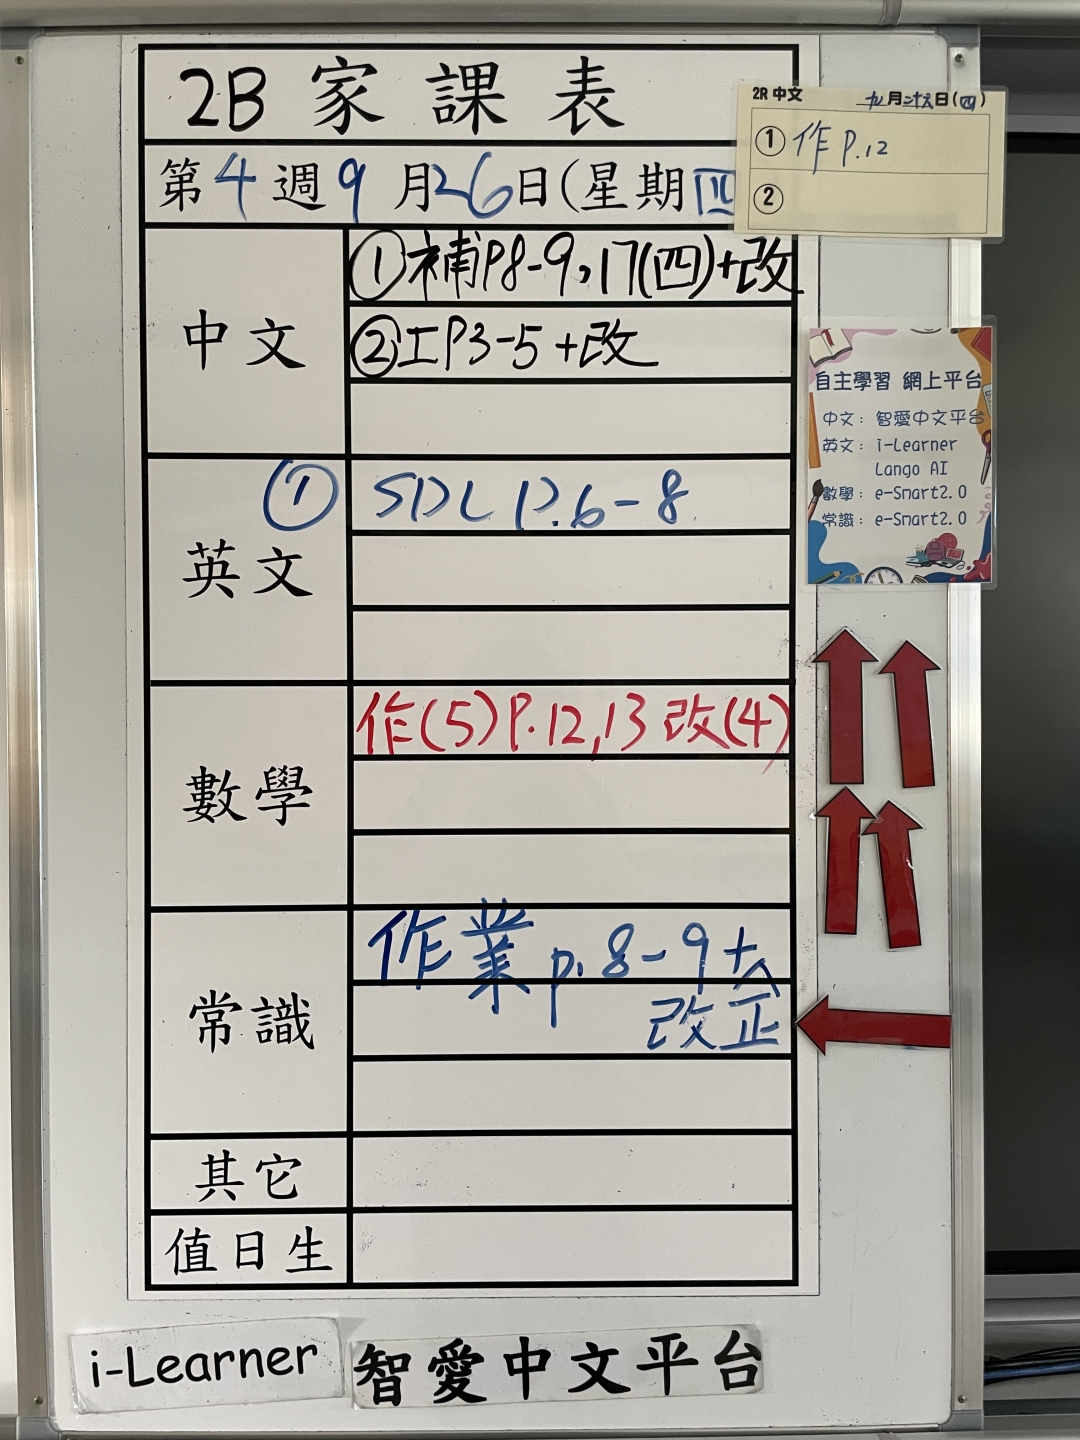 2B 家課表
第4週9月26日(星期四
中文
①補P8-9,17(四)+改
②工P3-5+改
英文
① SDL P.6-8
數學
作(5)P.12,13 改(4)
常識
作業 p.8-9+
改正
其它
值日生
i-Learner
智愛中文平台
2R 中文 九月二十六日(四)
① 作 P.12
②
自主學習 網上平台
中文: 智愛中文平台
英文: i-Learner
Lango AI
數學: e-Smart2.0
常識: e-Smart2.0